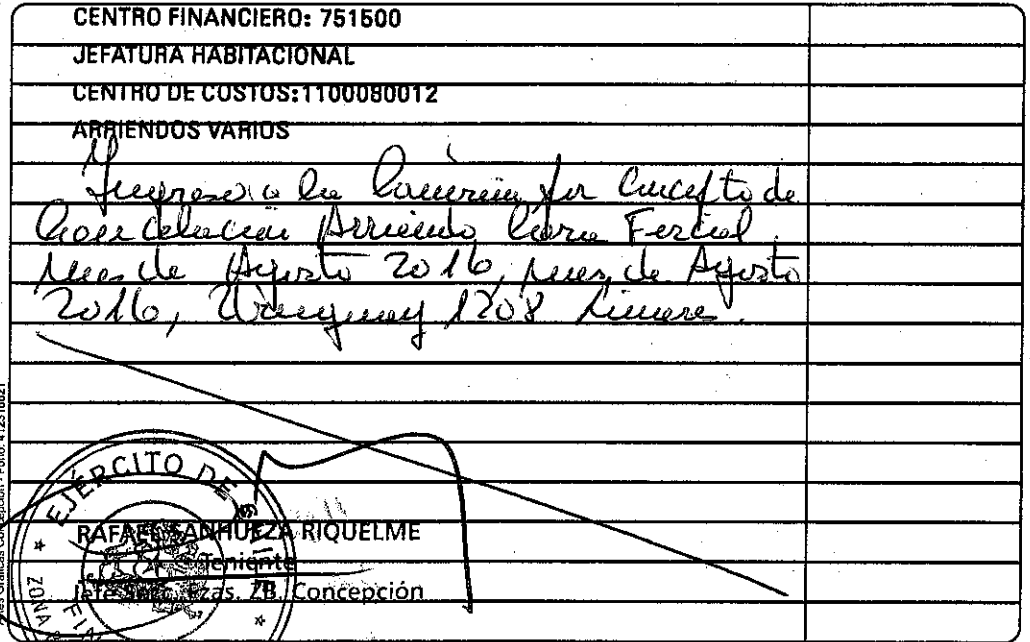 CENTRO FINANCIERO: 751500
JEFATURA HABITACIONAL
CENTRO DE COSTOS:1100080012
ARRIENDOS VARIOS
Ingreso a la por Concepto de
Arriendo Fiscal
mes de Agosto 2016, mes de Agosto
2016, Uruguay 1208 Linares.
EJÉRCITO DE
RAFAEL SANHUEZA RIQUELME
Teniente
Jefe Secc. Fzas. ZB. Concepción
ZONA